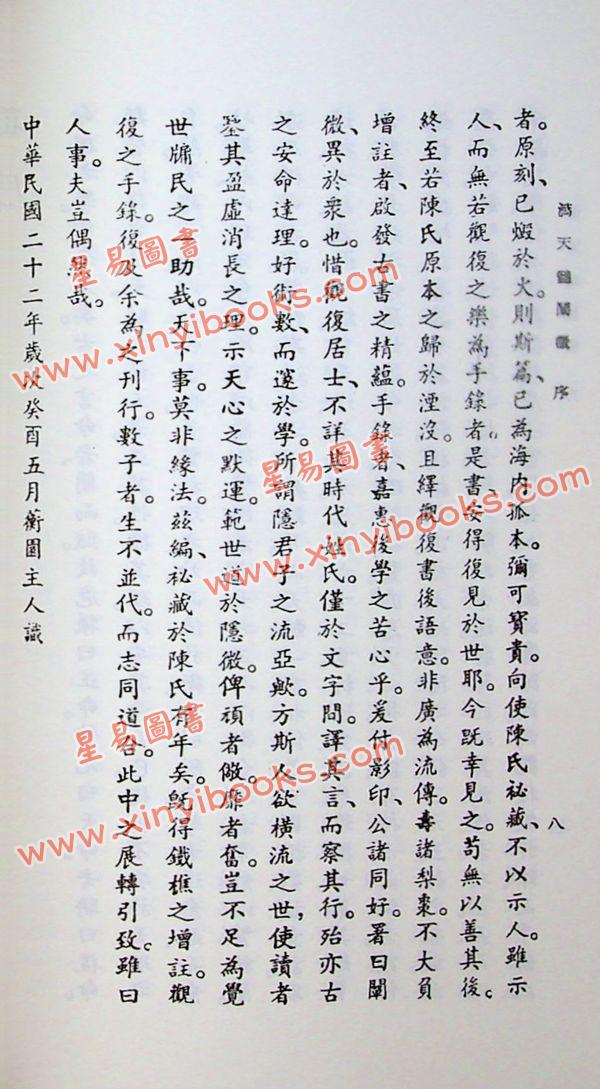 滴天髓闡微 序
八
者。原刻、已燬於火。則斯篇、已為海內孤本。彌可寶貴。向使陳氏祕藏、不以示人。雖示
人、而無若觀復之樂為手錄者。是書安得復見於世耶。今既幸見之。苟無以善其後。
終至若陳氏原本之歸於湮沒。且繹觀復書後語意。非廣為流傳。壽諸梨棗。不大負
增註者、啟發古書之精蘊。手錄者、嘉惠後學之苦心乎。爰付影印、公諸同好。署曰闡
微、異於衆也。惜觀復居士、不詳其時代姓氏。僅於文字間。譯其言、而察其行。殆亦古
之安命達理。好術數、而邃於學。所謂隱君子之流亞歟。方斯人欲橫流之世，使讀者
鑒其盈虛消長之理。示天心之默運。範世道於隱微。俾頑者儆。靡者奮。豈不足為覺
世牖民之一助哉。天下事。莫非緣法。茲編、祕藏於陳氏有年矣。既得鐵樵之增註。觀
復之手錄。復及余為之刊行。數子者。生不並代。而志同道合。此中之展轉引致。雖曰
人事。夫豈偶然哉。
中華民國二十二年歲次癸酉五月衡園主人識
星易圖書
www.xinyibooks.com
星易圖書
www.xinyibooks.com
星易圖書
www.xinyibooks.com